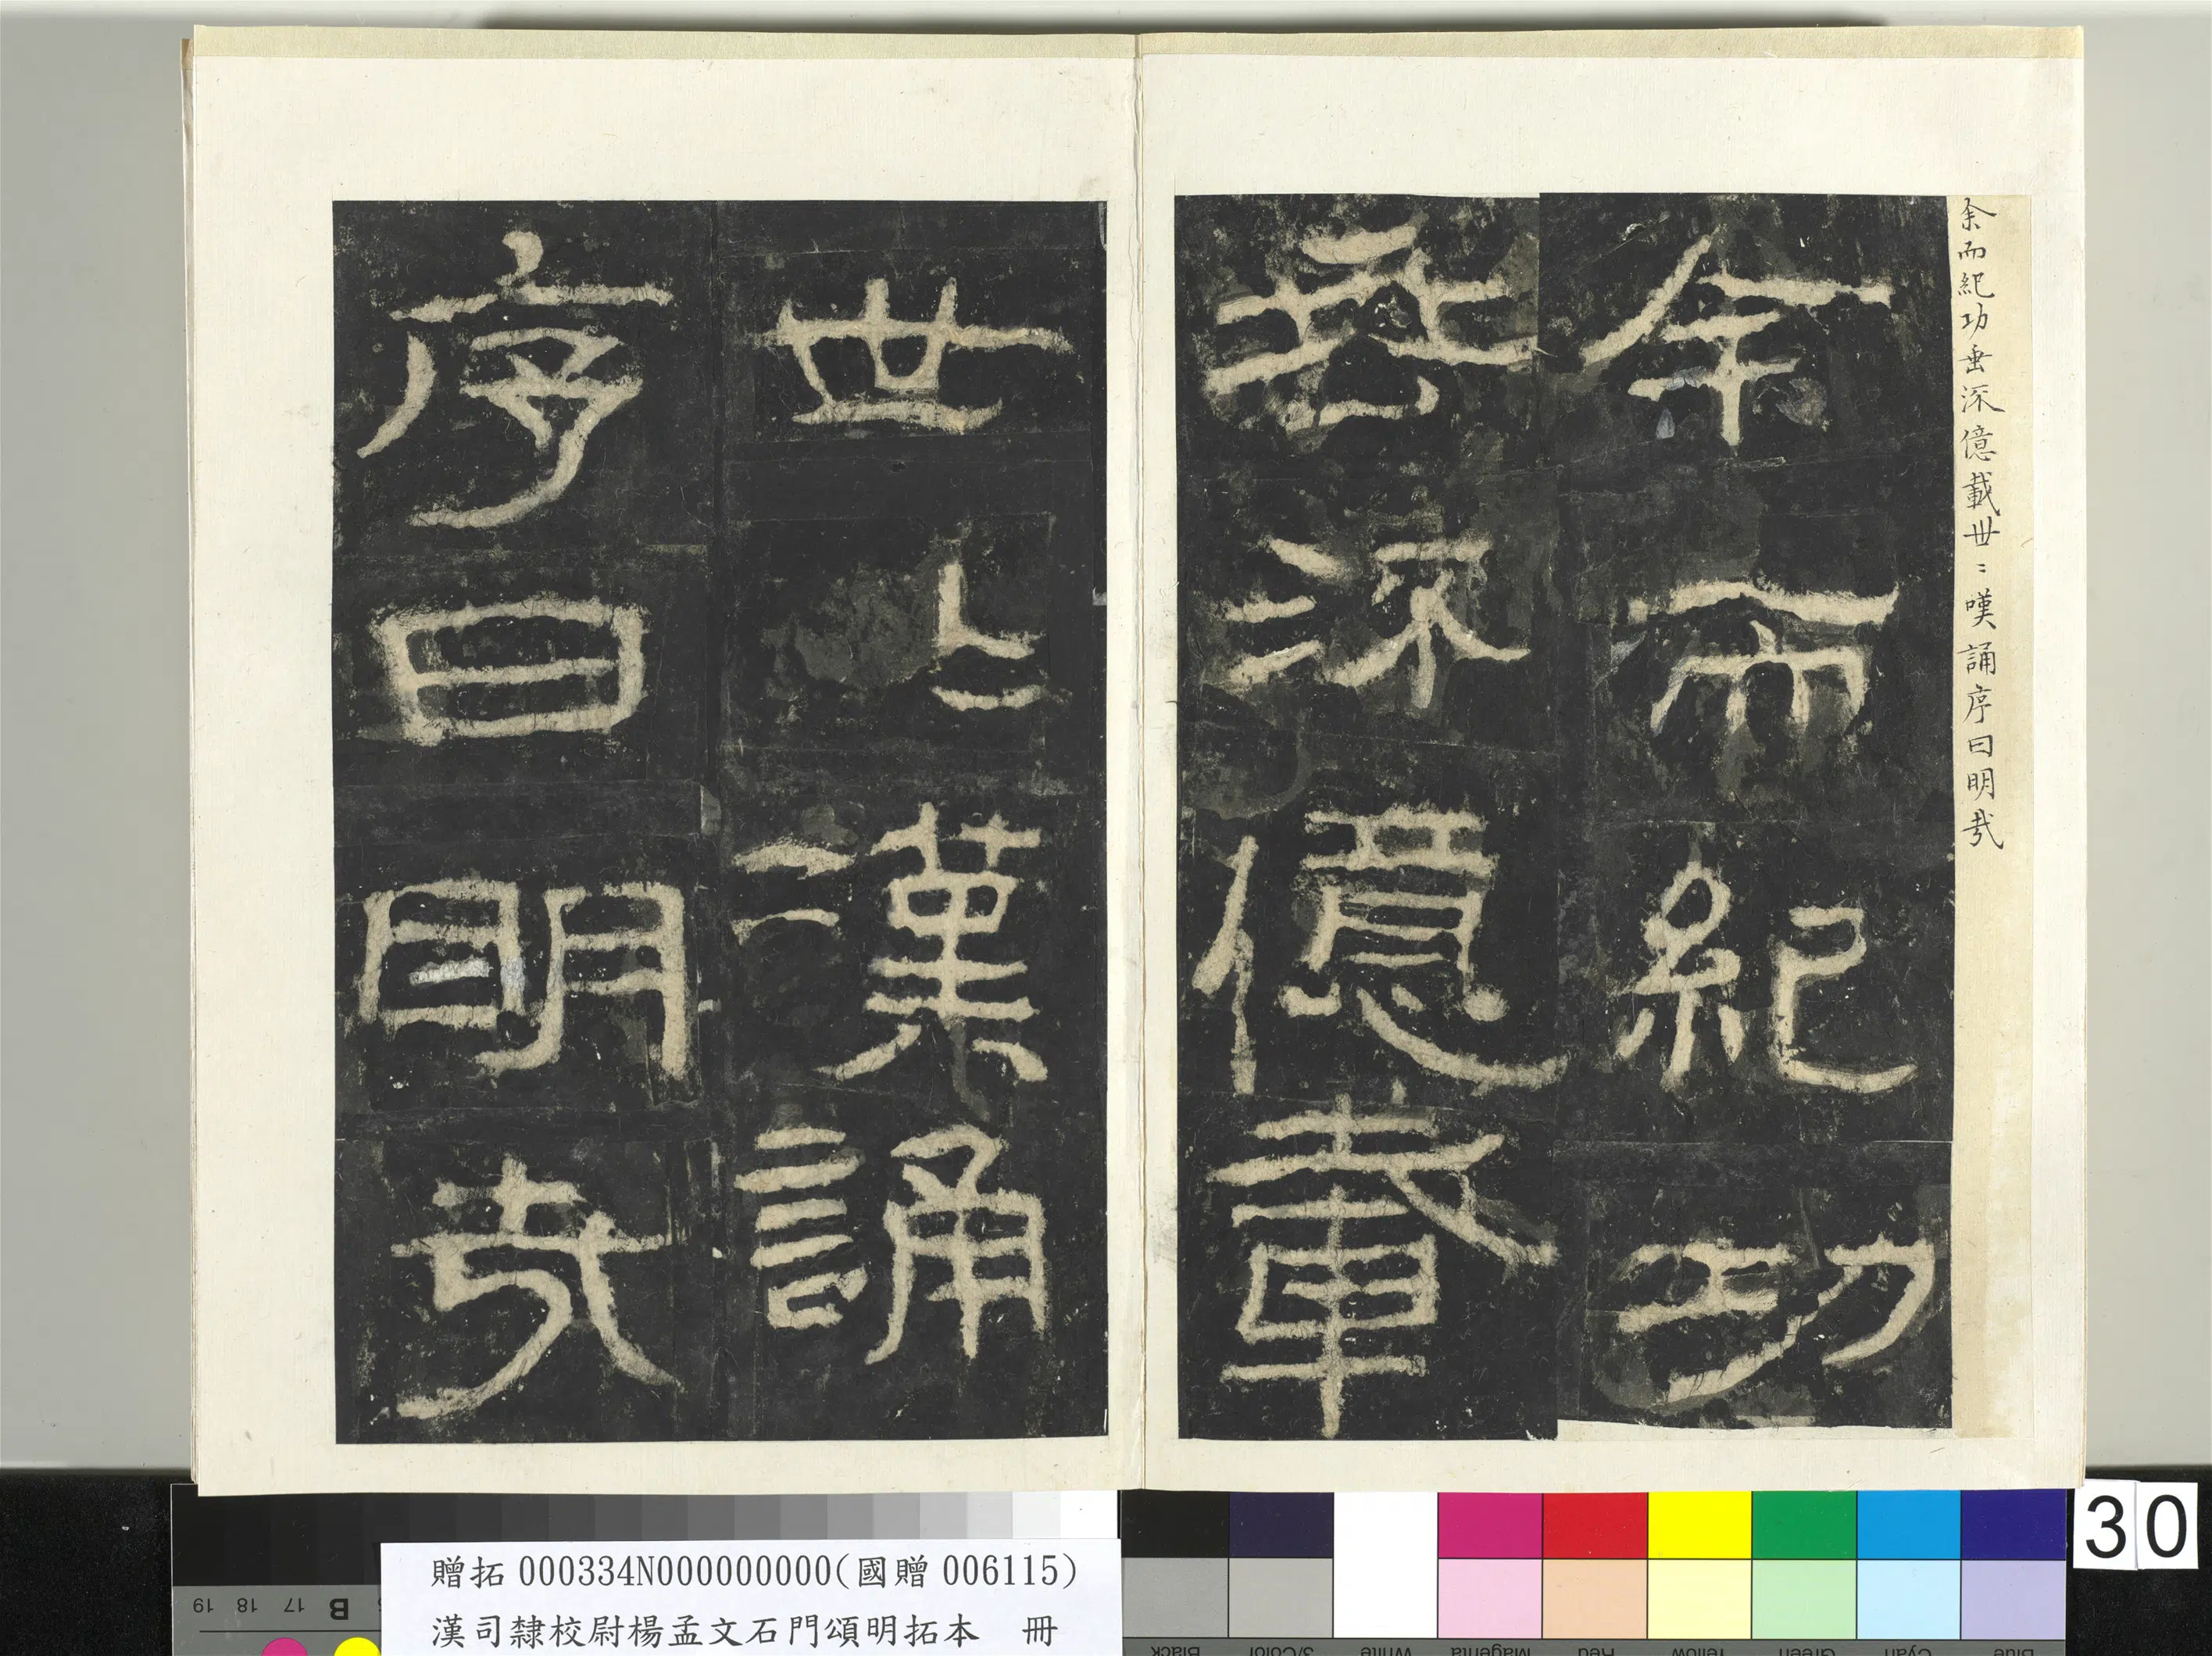 余而紀功垂深億載世〻嘆誦序曰明㢤
余而紀功
垂深億載
世〻嘆誦
序曰明㢤
30
贈拓 000334N000000000(國贈 006115)
漢司隸校尉楊孟文石門頌明拓本　冊
19 18 17 B
Black 3/Color White Magenta Red Yellow Green Cyan Blue